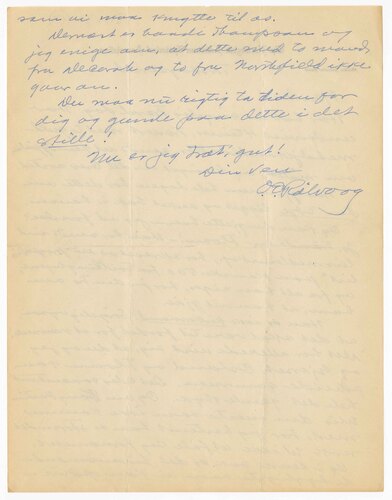 som vi maa knytte til os.
Dernæst er baade Thompson og
jeg enige om, at dette med to mand
fra Decorah og to fra Northfield ikke
gaar an.
Du maa nu rigtig ta tiden for
dig og gunde paa dette i det
stille!
Nu er jeg træt, gut!
Din ven
O. E. Rölvaag